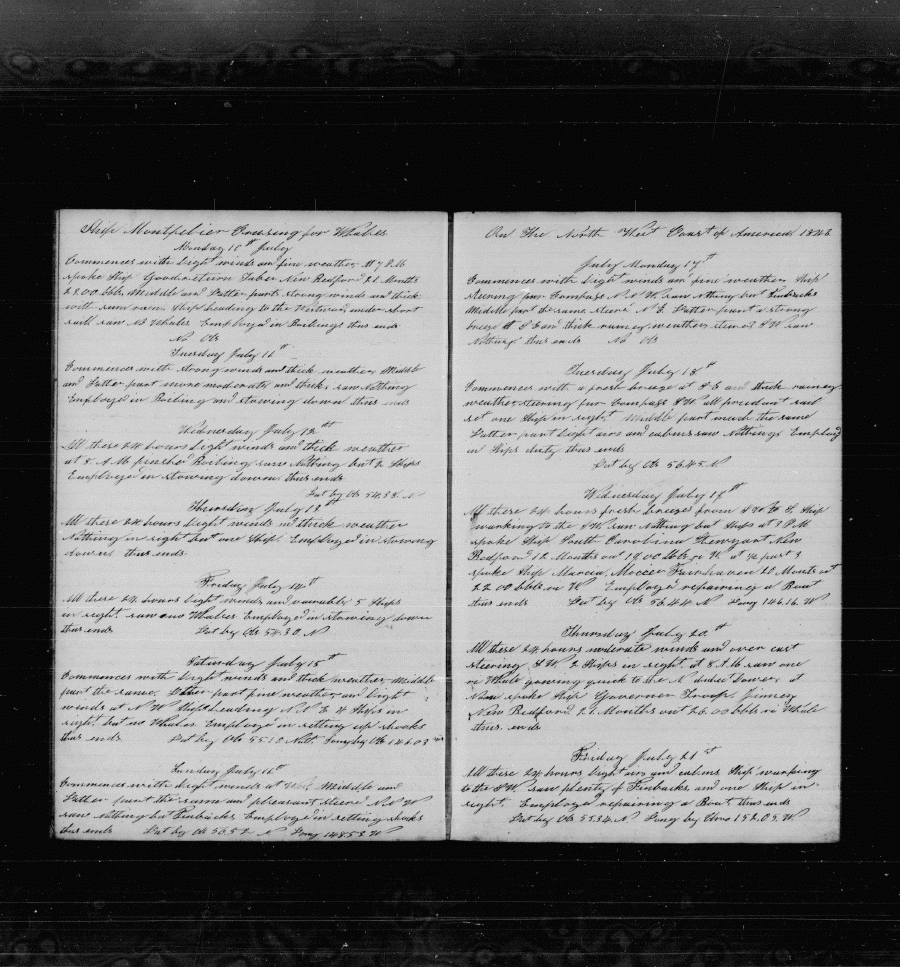 Ship Montpelier Cruising for Whales
Monday 10th July
Commences with light winds and fine weather At 7 P.M
spoke Ship Goodreturn Taber New Bedford 21 Months
2800 bbls Middle and Latter parts strong winds and thick
with some rain Ship heading to the Westward under short
sail saw no Whales Employed in Boiling thus ends
No Obs
Tuesday July 11th
Commences with strong winds and thick weather Middle
and Latter part more moderate and thick saw Nothing
Employed in Boiling and stowing down thus ends
Wednesday July 12th
All these 24 hours light winds and thick weather
at 8 A.M finished Boiling saw Nothing but 2 Ships
Employed in stowing down thus ends
Lat by Obs 54.38 N
Thursday July 13th
All these 24 hours light winds and thick weather
Nothing in sight but one Ship Employed in stowing
down thus ends
Friday July 14th
All these 24 hours light winds and variable 5 Ships
in sight saw no Whales Employed in stowing down
thus ends Lat by Obs 54.30 N
Saturday July 15th
Commences with light winds and thick weather Middle
part the same Latter part fine weather and light
winds at N W Ship heading N.N.E 4 Ships in
sight but no Whales Employed in setting up shooks
thus ends Lat by Obs 55.12 North Long by 146.03
Sunday July 16th
Commences with light winds at Middle and
Latter part the same and pleasant steered N.N.W
saw nothing but Finbacks Employed in setting shooks
thus ends Lat by Obs 56.52 N Long 148.53 W
On The North West Coast of America 1848
July Monday 17th
Commences with light winds and fine weather Ship
steering per Compass N.N.W. saw nothing but Finbacks
Middle part the same steered N E Latter part a strong
breeze at S E and thick rainey weather steered S W saw
Nothing thus ends No Obs
Tuesday July 18th
Commences with a fresh breeze at S E and thick rainey
weather steering per Compass S W all prudent sail
set one Ship in sight Middle part much the same
Latter part light airs and calms saw Nothing Employed
in Ships duty thus ends
Lat by Obs 56.45 N
Wednesday July 19th
All these 24 hours fresh breezes from Ship
working to the S W saw Nothing but Ships at 1 P.M
spoke Ship South Carolina Stewart New
Bedford 12 Months out 1900 bbls at 1/2 past 3
spoke Ship Marcia Fairhaven 20 Months out
2200 bbls Employed repairing a Boat
thus ends Lat by Obs 56.44 N Long 146.16 W
Thursday July 20th
All these 24 hours moderate winds and over cast
steering S W 2 Ships in sight at 8 A.M saw one
Whale going quick to the N at
Noon spoke Ship Governor Troop
New Bedford 21 Months out 2600 bbls Whale
thus ends
Friday July 21st
All these 24 hours light airs and calms Ship working
to the S W saw plenty of Finbacks and one Ship in
sight Employed repairing a Boat thus ends
Lat by Obs 55.34 N Long by Chro 152.05 W